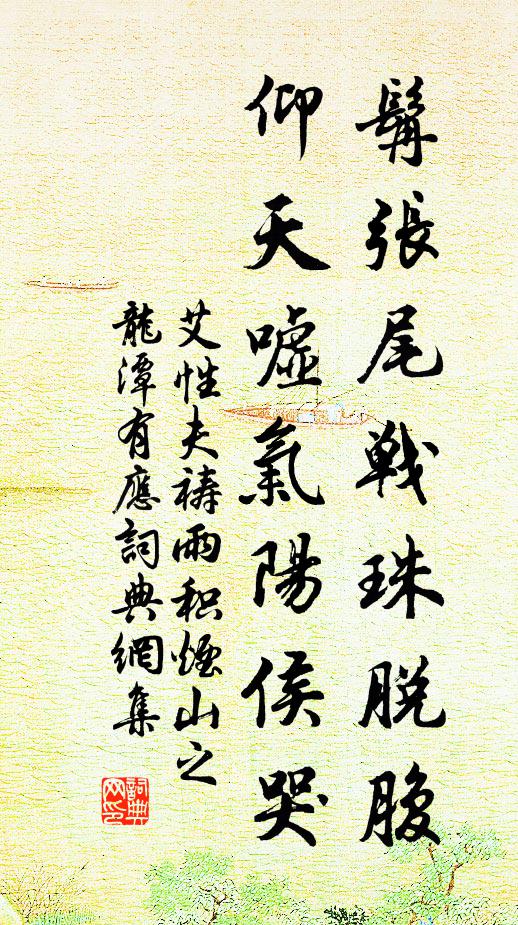 鬅張尾戰珠脱腹
仰天噓氣陽侯哭
艾性夫禱雨积煙山之
龍潭有應詞典網集
詞典
网印